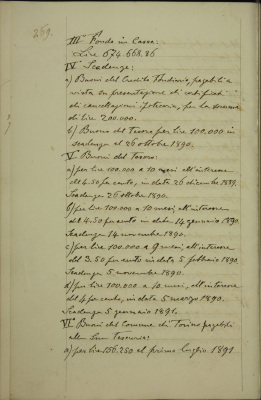 269.
III Fondo in Cassa:
Lire 674.668.86
IV Scadenze:
a) Buoni del Credito Fondiario, pagabili a
vista su presentazione di certificati
di cancellazioni ipotecarie, per la somma
di lire 200.000.
b) Buono del Tesoro per lire 100.000 in
scadenza al 26 ottobre 1890.
V Buoni del Tesoro:
a) per lire 100.000 a 10 mesi all'interesse
del 4.50 per cento, in data 26 dicembre 1889.
Scadenza 26 ottobre 1890.
b) per lire 100.000 a 10 mesi all'interesse
del 4.50 per cento in data 14 gennaio 1890
Scadenza 14 novembre 1890.
c) per lire 100.000 a 9 mesi all'interesse
del 3.50 per cento in data 5 febbraio 1890
Scadenza 5 novembre 1890.
d) per lire 100.000 a 10 mesi, all'interesse
del 4 per cento, in data 5 marzo 1890.
Scadenza 5 gennaio 1891.
VI Buoni del Comune di Torino pagabili
alla sua Tesoreria:
a) per lire 156.250 al primo luglio 1891